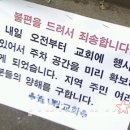 불편을 드려서 죄송합니다
내일 오전부터 교회에 행사
있어서 주차 공간을 미리 확보
게 되었습니다. 지역 주민 여러
분들의 양해를 구합니다.
교회